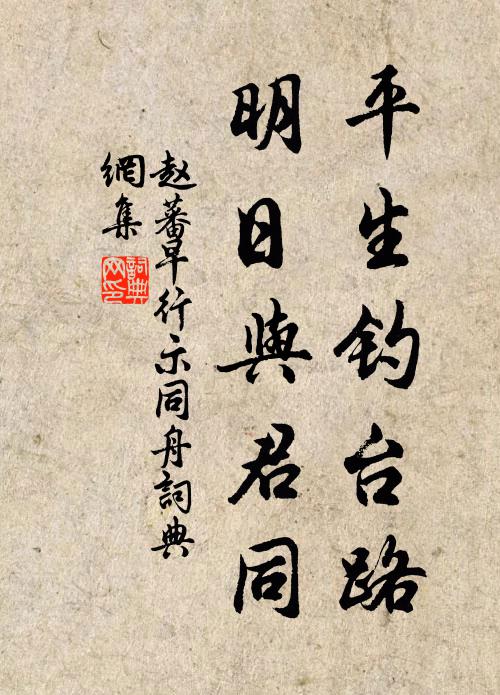 平生钓台路
明日與君同
赵蕃早行示同舟詞典
網集
詞典
网印